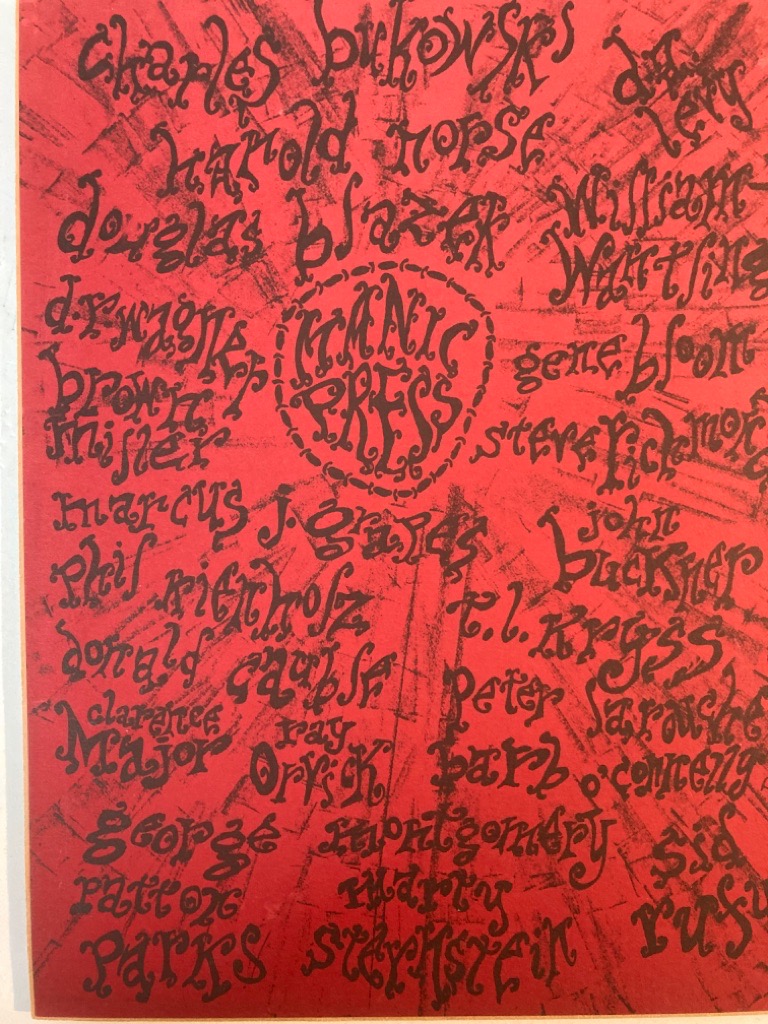 charles bukowski
d.a. levy
harold norse
douglas blazek
William Wantling
d.r. wagner
MANIC PRESS
gene bloom
brown miller
steve richmon
marcus j. grapes
john buckner
phil
t.l. kryss
donald cauble
peter
clarence Major
ray
barb o'connelly
george montgomery
sid
patton parks
marty sternstein